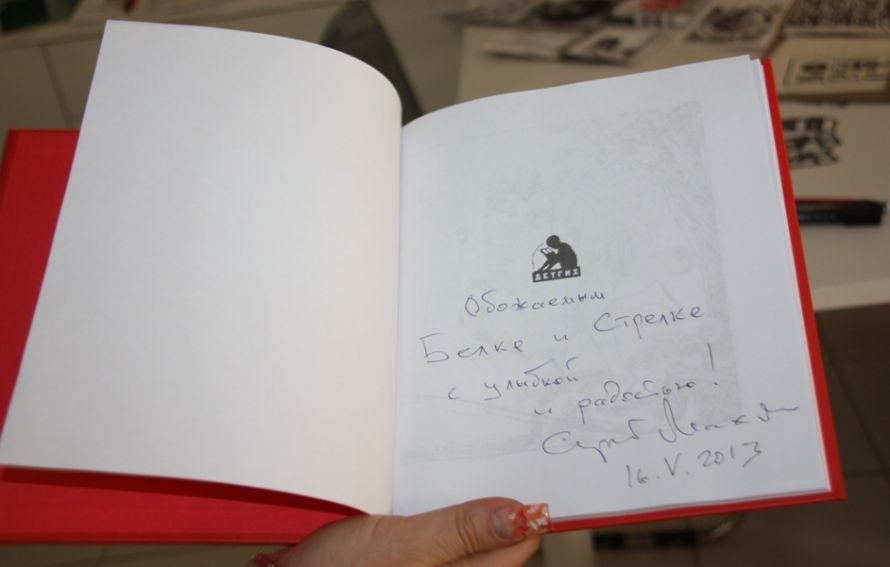 ДЕТГИЗ
Обожаемым
Белке и Стрелке
с улыбкой
и радостью!
16.V.2013